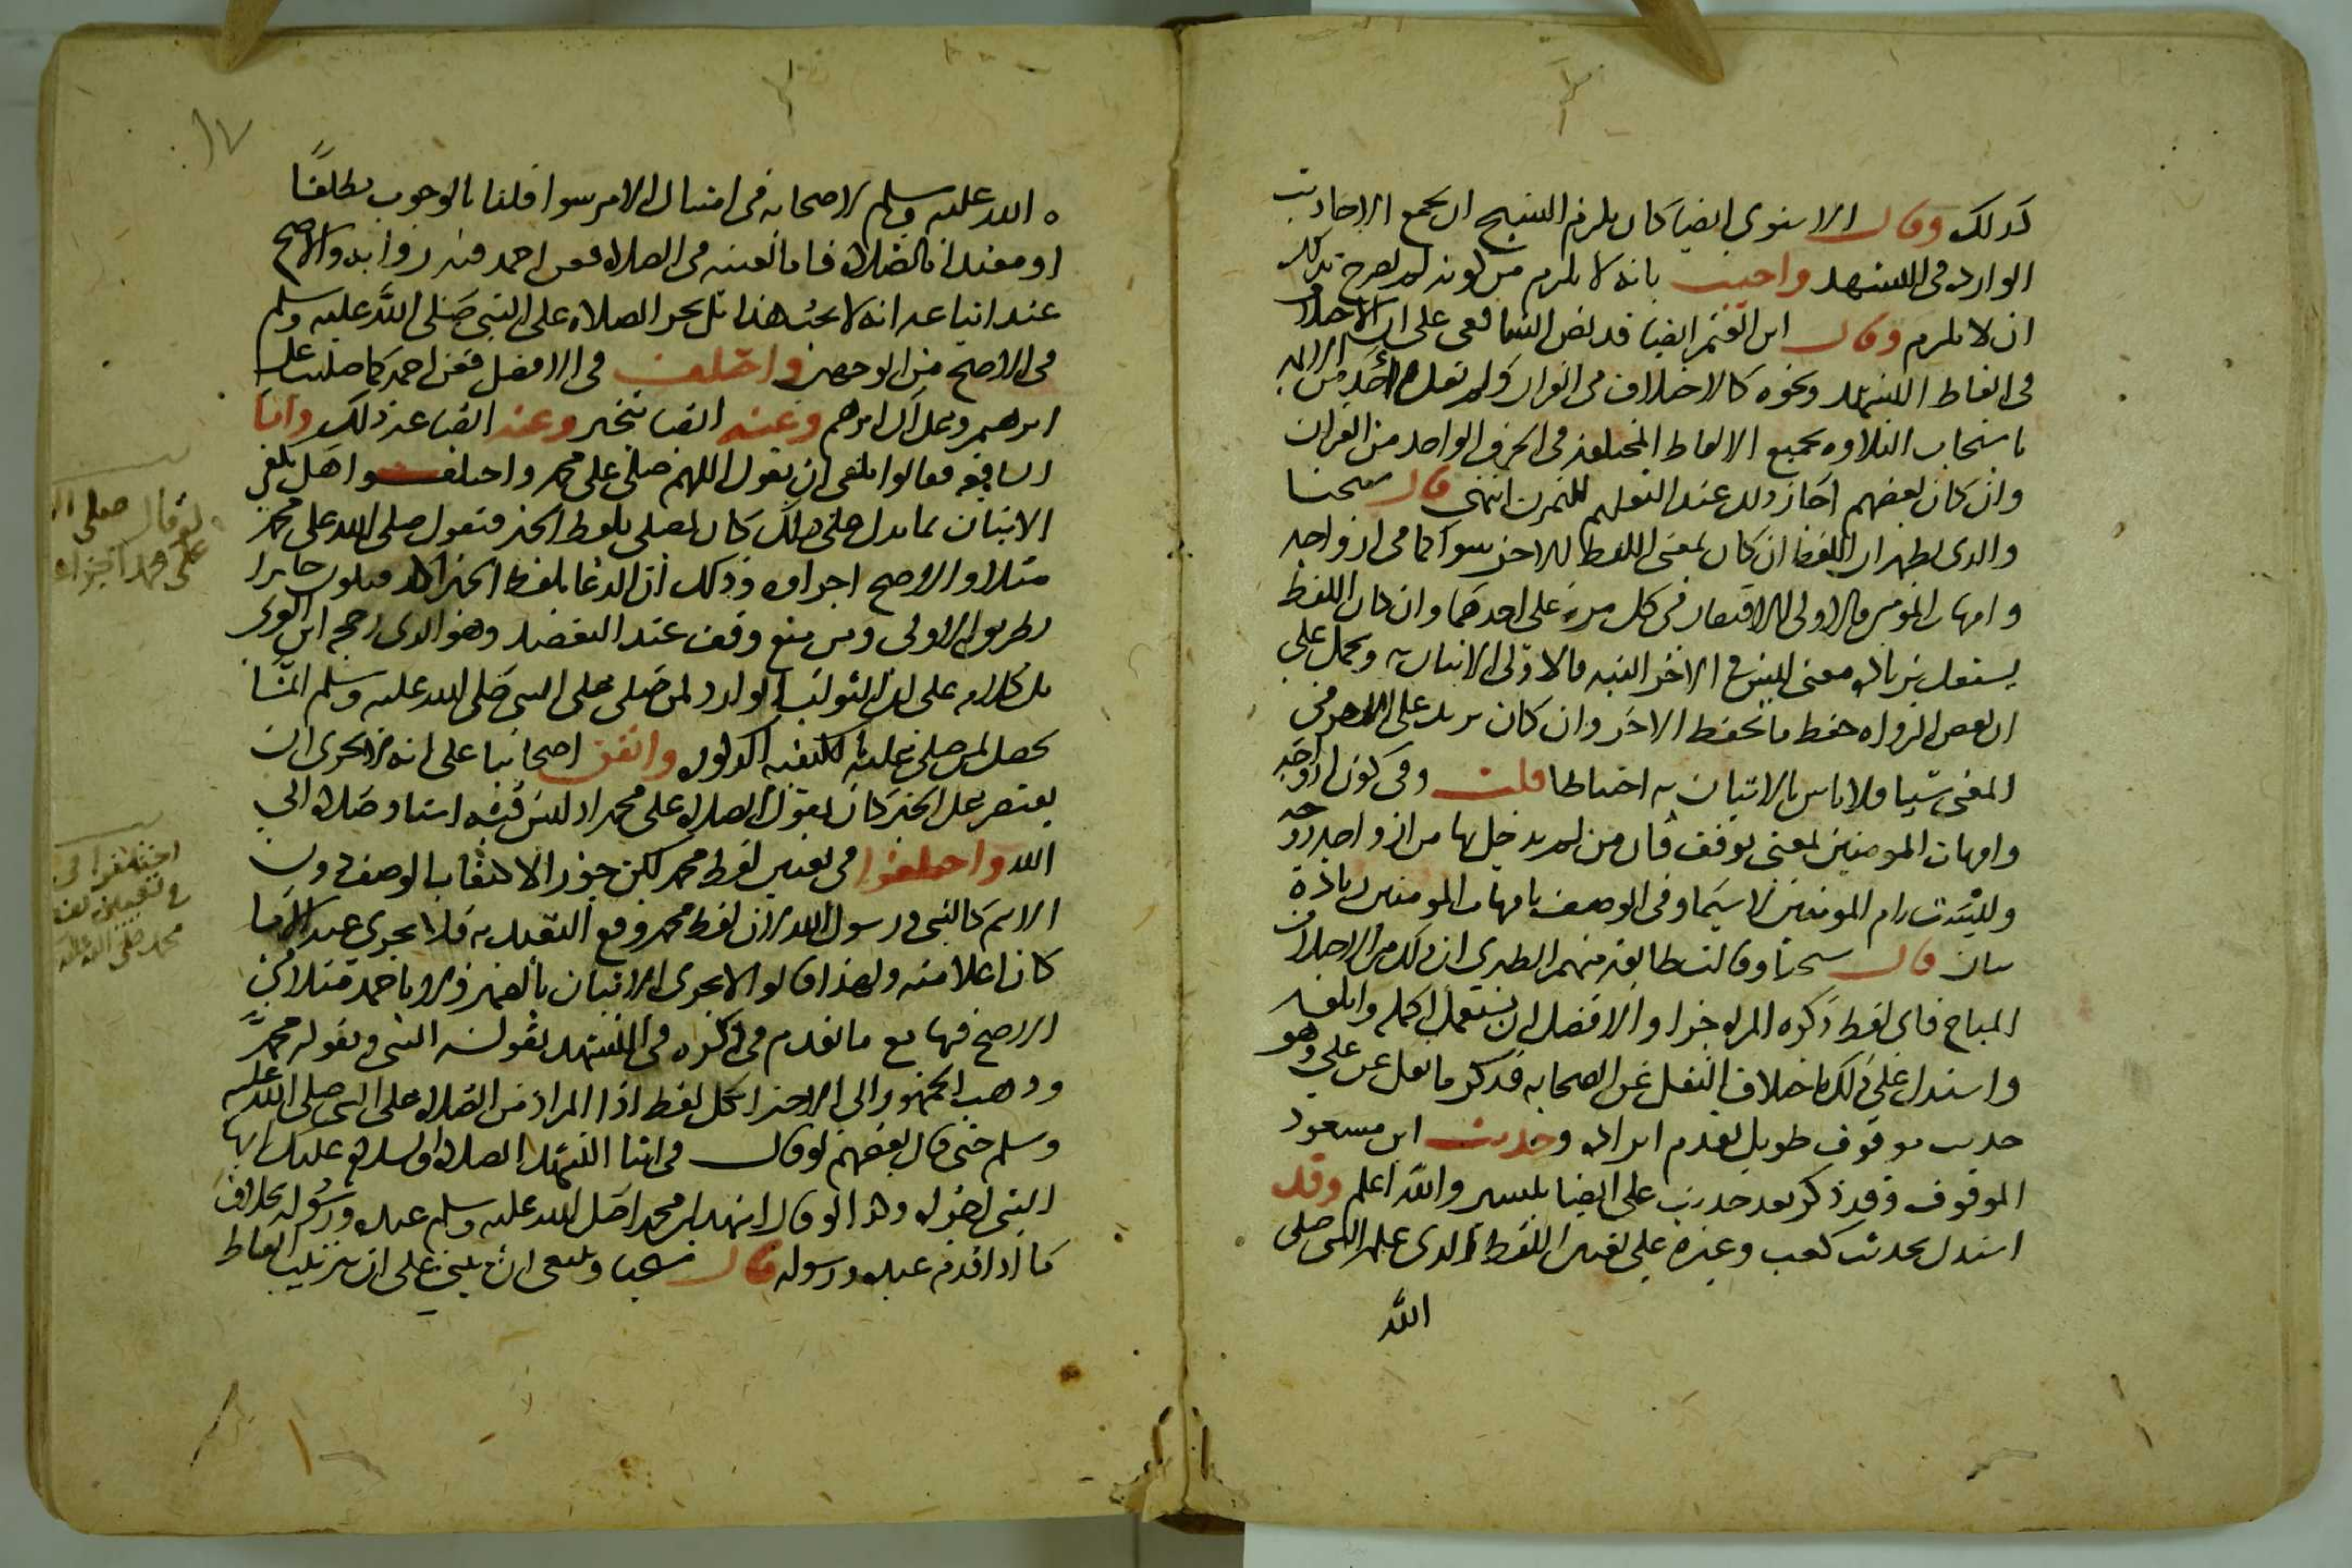 كذلك وقال الاسنوي ايضا كان يلزم الشيخ ان يجمع الاحاديث
الواردة في التشهد واجيب بانه لا يلزم من كونه لم يصرح بذلك
ان لا يلتزم وقال ابن القيم ايضا قد نص الشافعي على ان الاختلاف
في الفاظ التشهد ونحوه كالاختلاف في القران ولم يقل احد من الايمه
باستحباب التلاوه بجميع الالفاظ المختلفه في الحرف الواحد من القران
وان كان بعضهم اجاز ذلك عند التعليم للتمرين انتهى قال شيخنا
والذي يظهر ان اللفظ ان كان بمعنى اللفظ الاخر سوا كما في ازواجه
وامهات المومنين فالاولى الاقتصار في كل مره على احدهما وان كان اللفظ
يستقل بزياده معنى ليس في الاخر البته فالاولى الاتيان به ويحمل على
ان بعض الرواه حفظ ما لم يحفظ الاخر وان كان يزيد على الاخر في
المعنى شيا فلا باس بالاتيان به احتياطا قلت وفي كون ازواجه
وامهات المومنين بمعنى توقف فان من لم يدخل بها من ازواجه زوجه
وليست بام المومنين لا سيما وفي الوصف بامهات المومنين زيادة
بيان قال شيخنا وقالت طايفة منهم الطبري ان ذلك من الاختلاف
المباح فاي لفظ ذكره المرء اجزا والافضل ان يستعمل اكمله وابلغه
واستدل على ذلك باختلاف النقل عن الصحابه فذكر ما نقل عن علي وهو
حديث موقوف طويل تقدم ايراده وحديث ابن مسعود
الموقوف وقد ذكر بعد حديث علي ايضا بيسير والله اعلم وقد
استدل بحديث كعب وغيره على تعيين اللفظ الذي علمه النبي صلى
الله
الله عليه وسلم لاصحابه في امتثال الامر سوا قلنا بالوجوب مطلقًا
او مقيدا بالصلاة فاما تعينه في الصلاة فعن احمد فيه روايه والاصح
عند اتباعه انه لا يجب هذا بل يجز الصلاه على النبي صلى الله عليه وسلم
في الاصح من الوجهين واختلف في الافضل فعن احمد كما صليت على
ابرهيم وعلى آل ابرهيم وعنه ايضا يتخير وعنه ايضا غير ذلك واما
الشافعيه فقالوا يكفي ان يقول اللهم صل على محمد واختلفوا هل يكفي
الاتيان بما يدل على ذلك كان يصلي بلفظ الخبر فيقول صلى الله على محمد
مثلا والاصح اجزاوه وذلك ان الدعا بلفظ الخبر اكد فيكون جايزا
بطريق الاولى ومن منع وقف عند التعبد وهو الذي رجحه ابن العربي
بل كلامه على ان الثواب الوارد لمن صلى على النبي صلى الله عليه وسلم انما
يحصل لمن صلى عليه بالكيفيه المذكوره واتفق اصحابنا على انه لا يجزي ان
يقتصر على الخبر كان يقول الصلاه على محمد اذ ليس فيه اسناد صلاه الى
الله واختلفوا في تعيين لفظ محمد لكن جوزوا الاكتفا بالوصف دون
الاسم كالنبي ورسول الله لان لفظ محمد وقع التعبد به فلا يجزي عنه الا ما
كان اعلا منه ولهذا قالوا لا يجزي الاتيان بالضمير ولا باحمد مثلا في
الاصح فيها مع ما تقدم في ذكره في التشهد بقوله النبي وبقوله محمد
وذهب الجمهور الى الاجتزا بكل لفظ ادا المراد من الصلاه على النبي صلى الله عليه
وسلم حتى قال بعضهم لو قال في اثنا التشهد الصلاة والسلام عليك ايها
النبي اجزاه وكذا لو قال اشهد ان محمدا صلى الله عليه وسلم عبده ورسوله بخلاف
ما اذا قدم عبده ورسوله قال شيخنا وينبغي ان ينبني على ان ترتيب الفاظ
لو قال صلى الله
على محمد اجزاه
اختلفوا في
في تعيين لفظ
محمد صلى الله عليه
١٧